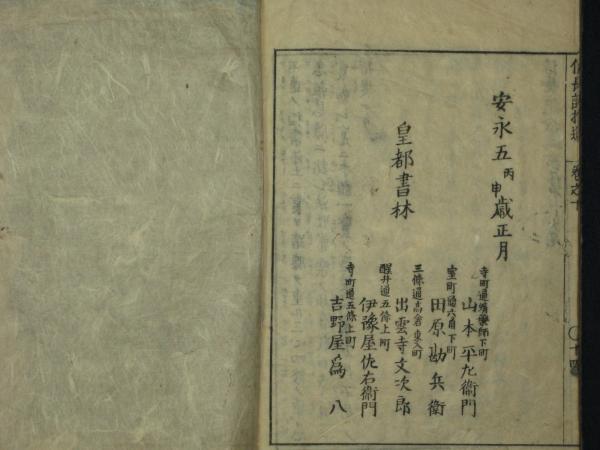 信長記拾遺 巻之十
安永五丙申歳正月
皇都書林
寺町通蛸薬師下町
山本平左衛門
室町通六角下町
田原勘兵衛
三條通高倉東入町
出雲寺文次郎
醒井通五條上町
伊豫屋佐右衛門
寺町通五條上町
吉野屋為八